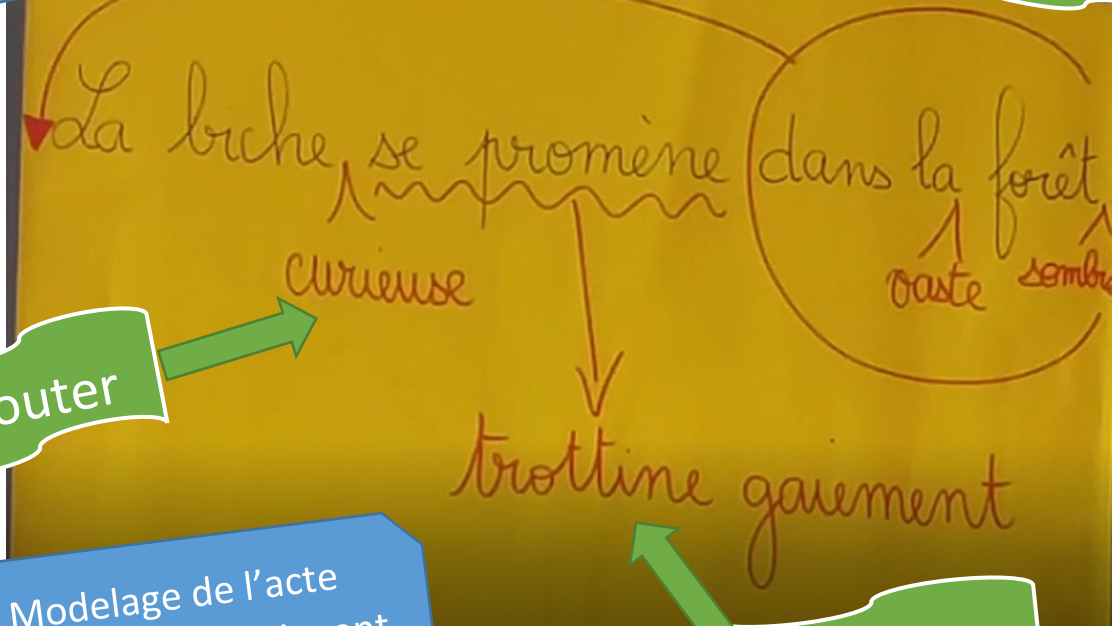 La biche se promène dans la forêt
curieuse
vaste
trottine gaiement
Modelage de l'acte